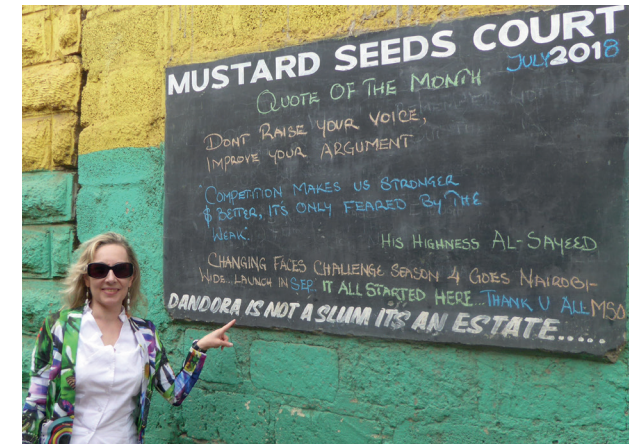 MUSTARD SEEDS COURT
JULY 2018
QUOTE OF THE MONTH
DONT RAISE YOUR VOICE,
IMPROVE YOUR ARGUMENT
COMPETITION MAKES US STRONGER
& BETTER, IT'S ONLY FEARED BY THE
WEAK.
HIS HIGHNESS AL-SAYEED
CHANGING FACES CHALLENGE SEASON 4 GOES NAIROBI-
WIDE. LAUNCH IN SEP. IT ALL STARTED HERE...THANK U ALL MSO
DANDORA IS NOT A SLUM ITS AN ESTATE.....